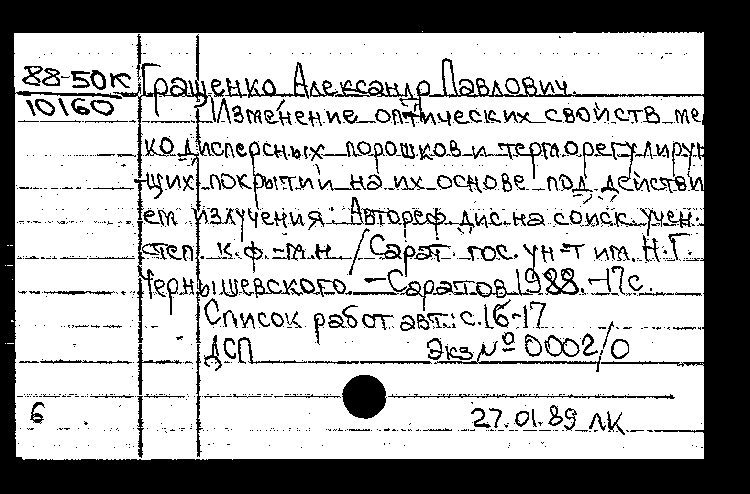 88-50К Гращенко Александр Павлович.
10160 Изменение оптических свойств ме
кодисперсных порошков и терморегулирую
щих покрытий на их основе под действи
ем излучения: Автореф. дис. на соиск. учен.
степ. к.ф.-м.н. /Сарат. гос. ун-т им. Н.Г.
Чернышевского. -Саратов 1988. -17с.
Список работ авт.: с.16-17
ДСП Экз № 0002/0
6 27.01.89 ЛК